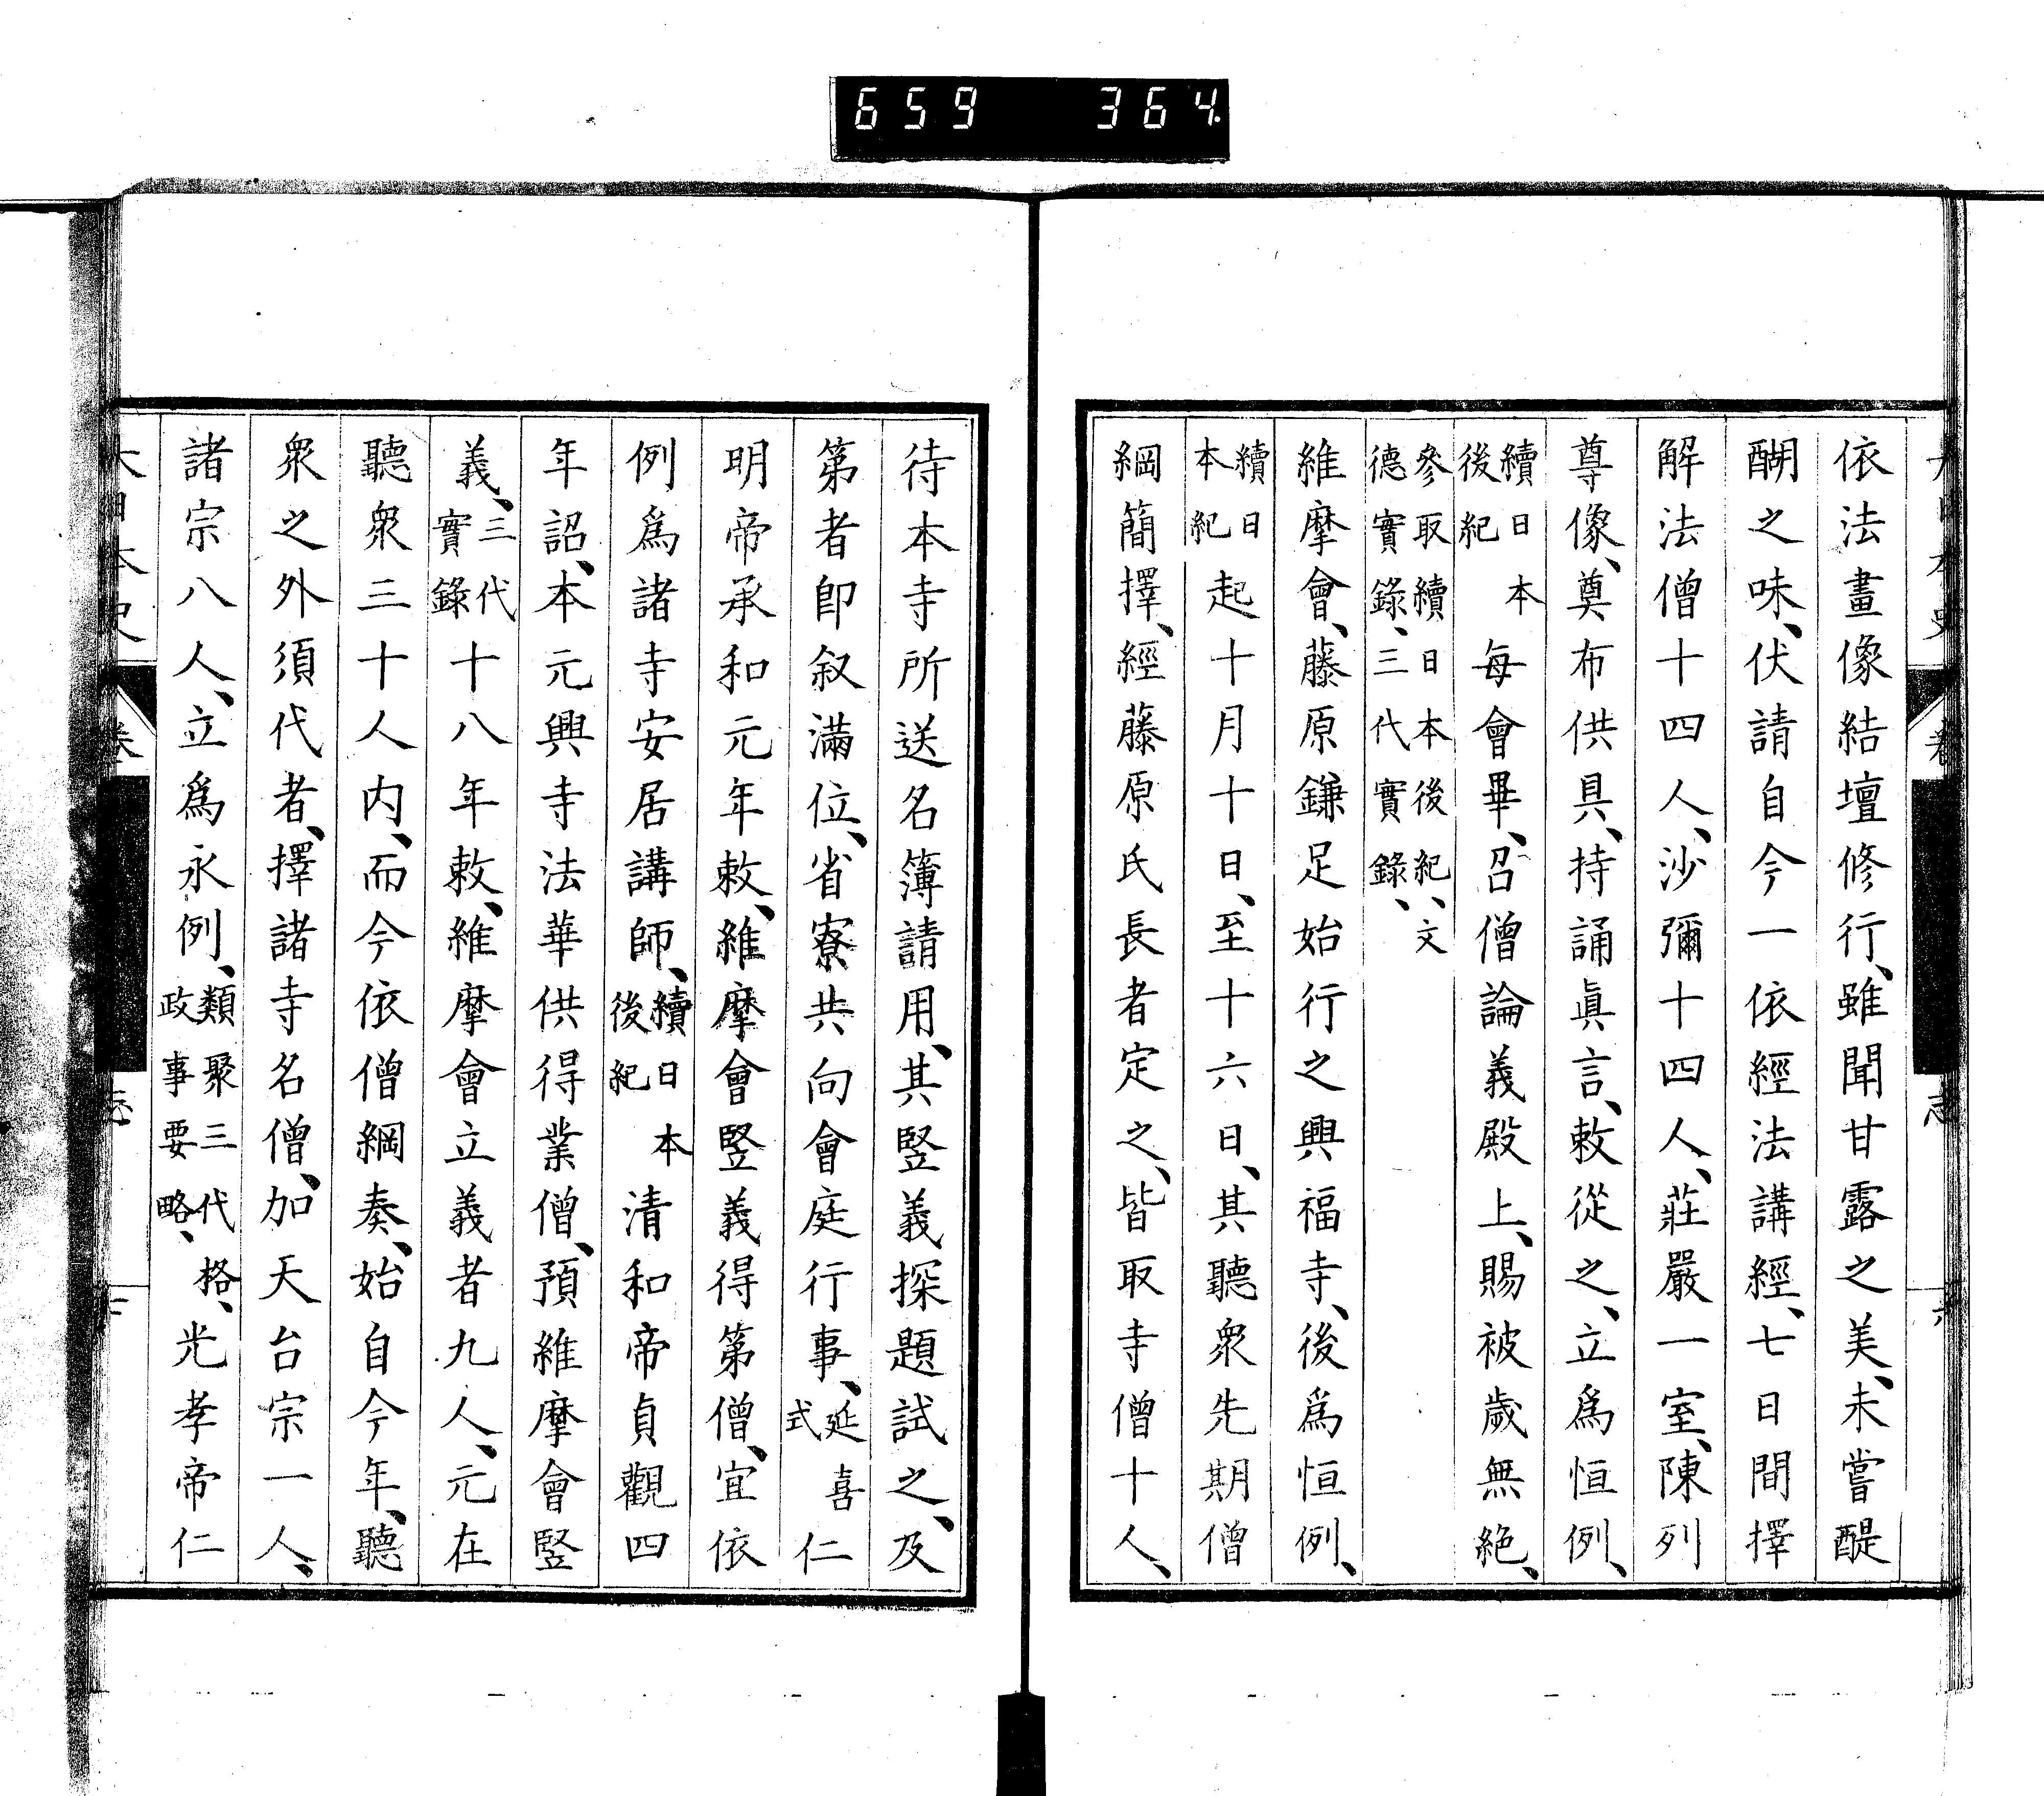 659 364
依法畫像結壇修行、雖聞甘露之美、未嘗醍
醐之味、伏請自今一依經法講經、七日間擇
解法僧十四人、沙彌十四人、莊嚴一室、陳列
尊像、奠布供具、持誦眞言、敕從之、立爲恒例、
續日本後紀每會畢、召僧論義殿上、賜被歲無絶、
參取續日本後紀、文德實錄、三代實錄、
維摩會、藤原鎌足始行之興福寺、後爲恒例、
續日本紀起十月十日、至十六日、其聽衆先期僧
綱簡擇、經藤原氏長者定之、皆取寺僧十人、
待本寺所送名簿請用、其竪義探題試之、及
第者卽叙滿位、省寮共向會庭行事、延喜式仁
明帝承和元年敕、維摩會竪義得第僧、宜依
例爲諸寺安居講師、續日本後紀淸和帝貞觀四
年詔、本元興寺法華供得業僧、預維摩會竪
義、三代實錄十八年敕、維摩會立義者九人、元在
聽衆三十人内、而今依僧綱奏、始自今年、聽
衆之外須代者、擇諸寺名僧、加天台宗一人、
諸宗八人、立爲永例、類聚三代格、政事要略、光孝帝仁